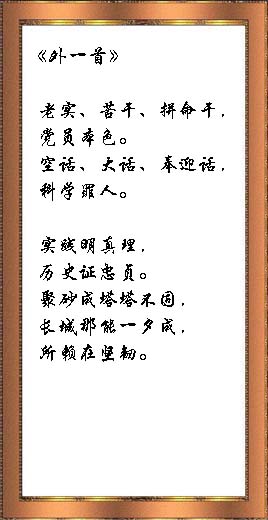 《外一首》
老实、苦干、拼命干，
党员本色。
空话、大话、奉迎话，
科学罪人。
实践明真理，
历史证忠贞。
聚砂成塔塔不固，
长城那能一夕成，
所赖在坚韧。